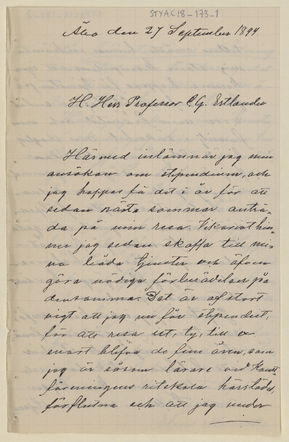 STYAC18-173-1
Åbo den 27 September 1894
H. Herr Professor C. G. Estlander
Härmed inlämnar jag min
ansökan om stipendium, och
jag hoppas få det i år för att
sedan nästa sommar anträ-
da på min resa. Vikariat hin-
ner jag sedan skaffa till mi-
na båda tjenster och äfven
göra nödiga förberedelser på
densamma. Det är af stort
vigt att jag nu får stipendiet,
för att resa ut, ty, till v
snart blifva de fem åren, som
jag är såsom lärare vid Konst
föreningens ritskola härstädes,
förflutna och att jag under